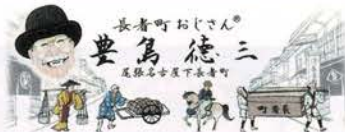 長者町おじさん®
豊島徳三
尾張名古屋下長者町
長者町